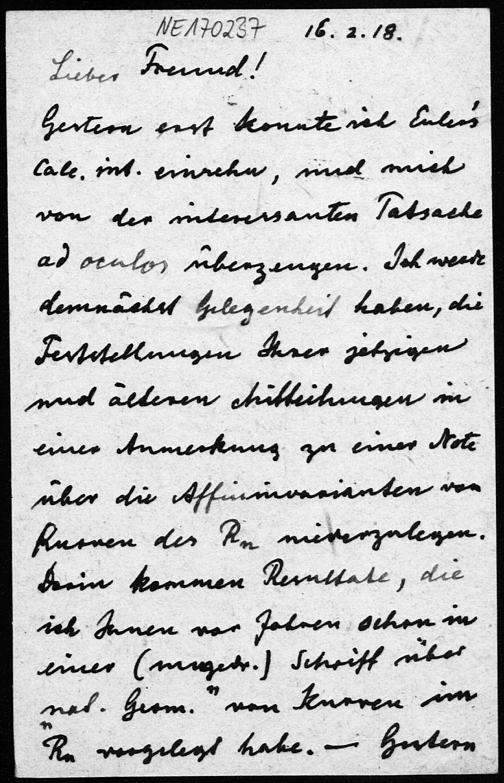 NE170237 16.2.18.
Lieber Freund!
Gestern erst konnte ich Euler's
Calc. int. einsehn, und mich
von der interessanten Tatsache
ad oculos überzeugen. Ich werde
demnächst Gelegenheit haben, die
Feststellungen Ihrer jetzigen
und älteren Mitteilungen in
einer Anmerkung zu einer Note
über die Affininvarianten von
Kurven des Rn niederzulegen.
Darin kommen Resultate, die
ich Ihnen vor Jahren schon in
einer (ungedr.) Schrift über
nat. Geom. " von Kurven im
"Rn vorgelegt habe. — Gestern